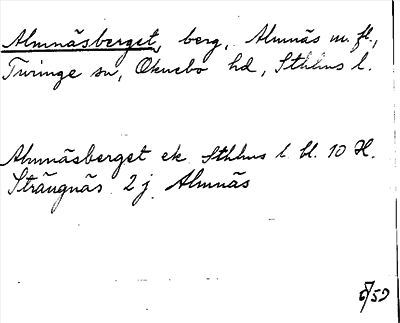 Almnäsberget, berg, Almnäs m. fl.,
Turinge sn, Öknebo hd, Sthlms l.
Almnäsberget ek Sthlms l bl. 10 H.
Strängnäs 2 j Almnäs